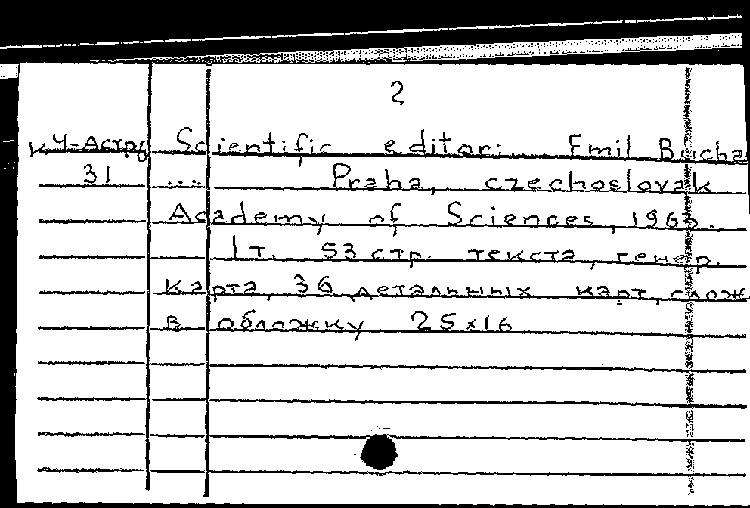 2
КЧ-Астр Scientific editor: Emil Bucha
31 ... Praha, czechoslovak
Academy of Sciences, 1963.
1 т. 53 стр. текста, генер.
карта, 36 детальных карт, слож
в обложку 25x16